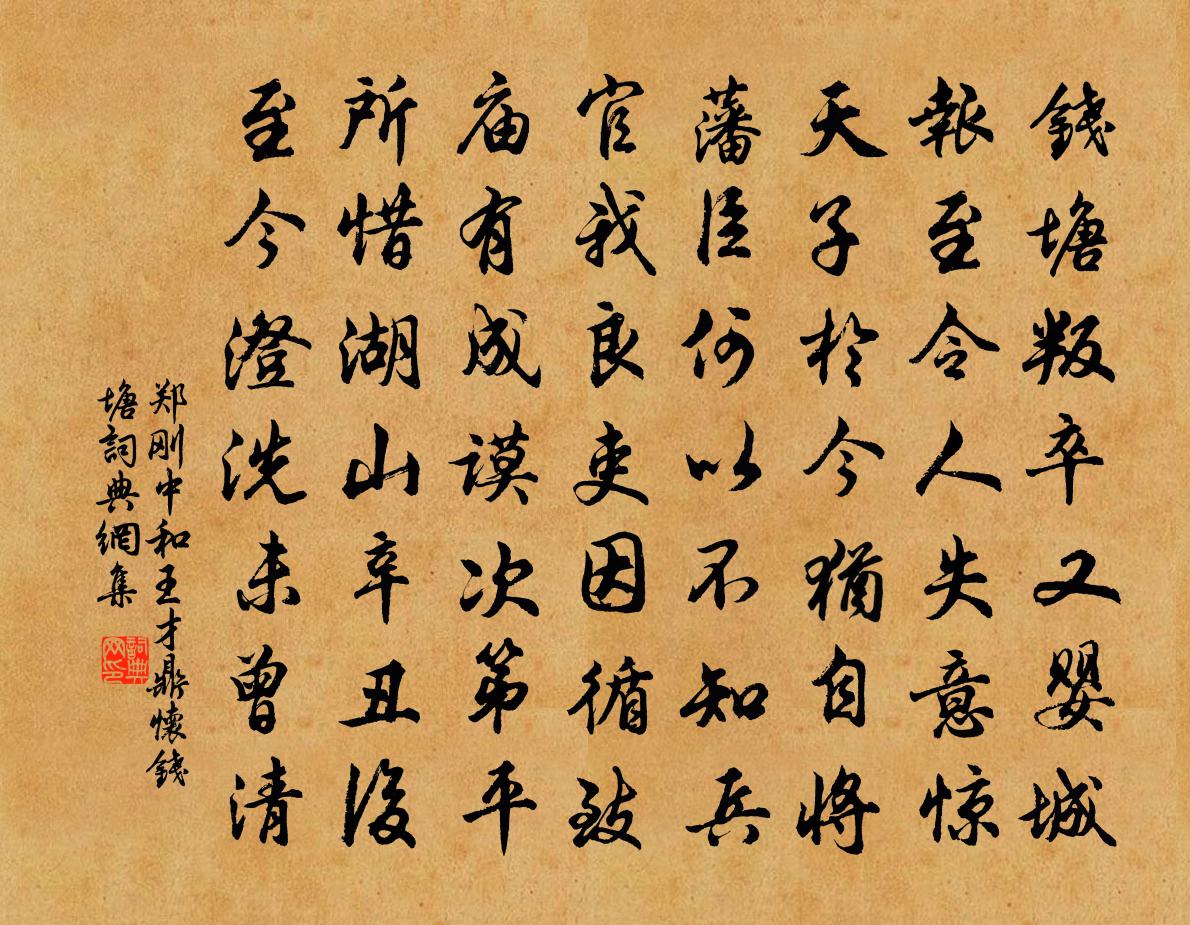 錢塘叛卒又嬰城
報至令人失意惊
天子於今猶自將
藩臣何以不知兵
官我良吏因循致
庙有成谟次第平
所惜湖山辛丑後
至今澄洗未曾清
郑刚中和王才鼎懷錢
塘詞典網集
詞典网印